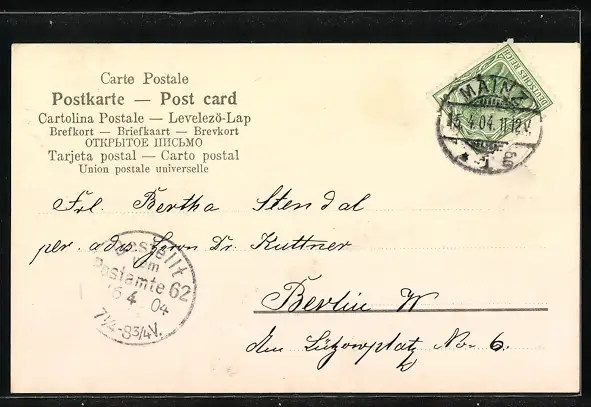 Carte Postale
Postkarte — Post card
Cartolina Postale — Levelező-Lap
Brefkort — Briefkaart — Brevkort
ОТКРЫТОЕ ПИСЬМО
Tarjeta postal — Carto postal
Union postale universelle
DEUTSCHES REICH
MAINZ
15.4.04.11-12V.
* 1
Frl. Bertha Stendal
per. adrs. Herrn Dr. Kuttner
Bestellt
vom
Postamte 62
16 4 04
7½-8¾V.
Berlin W
Lützowplatz No 6.